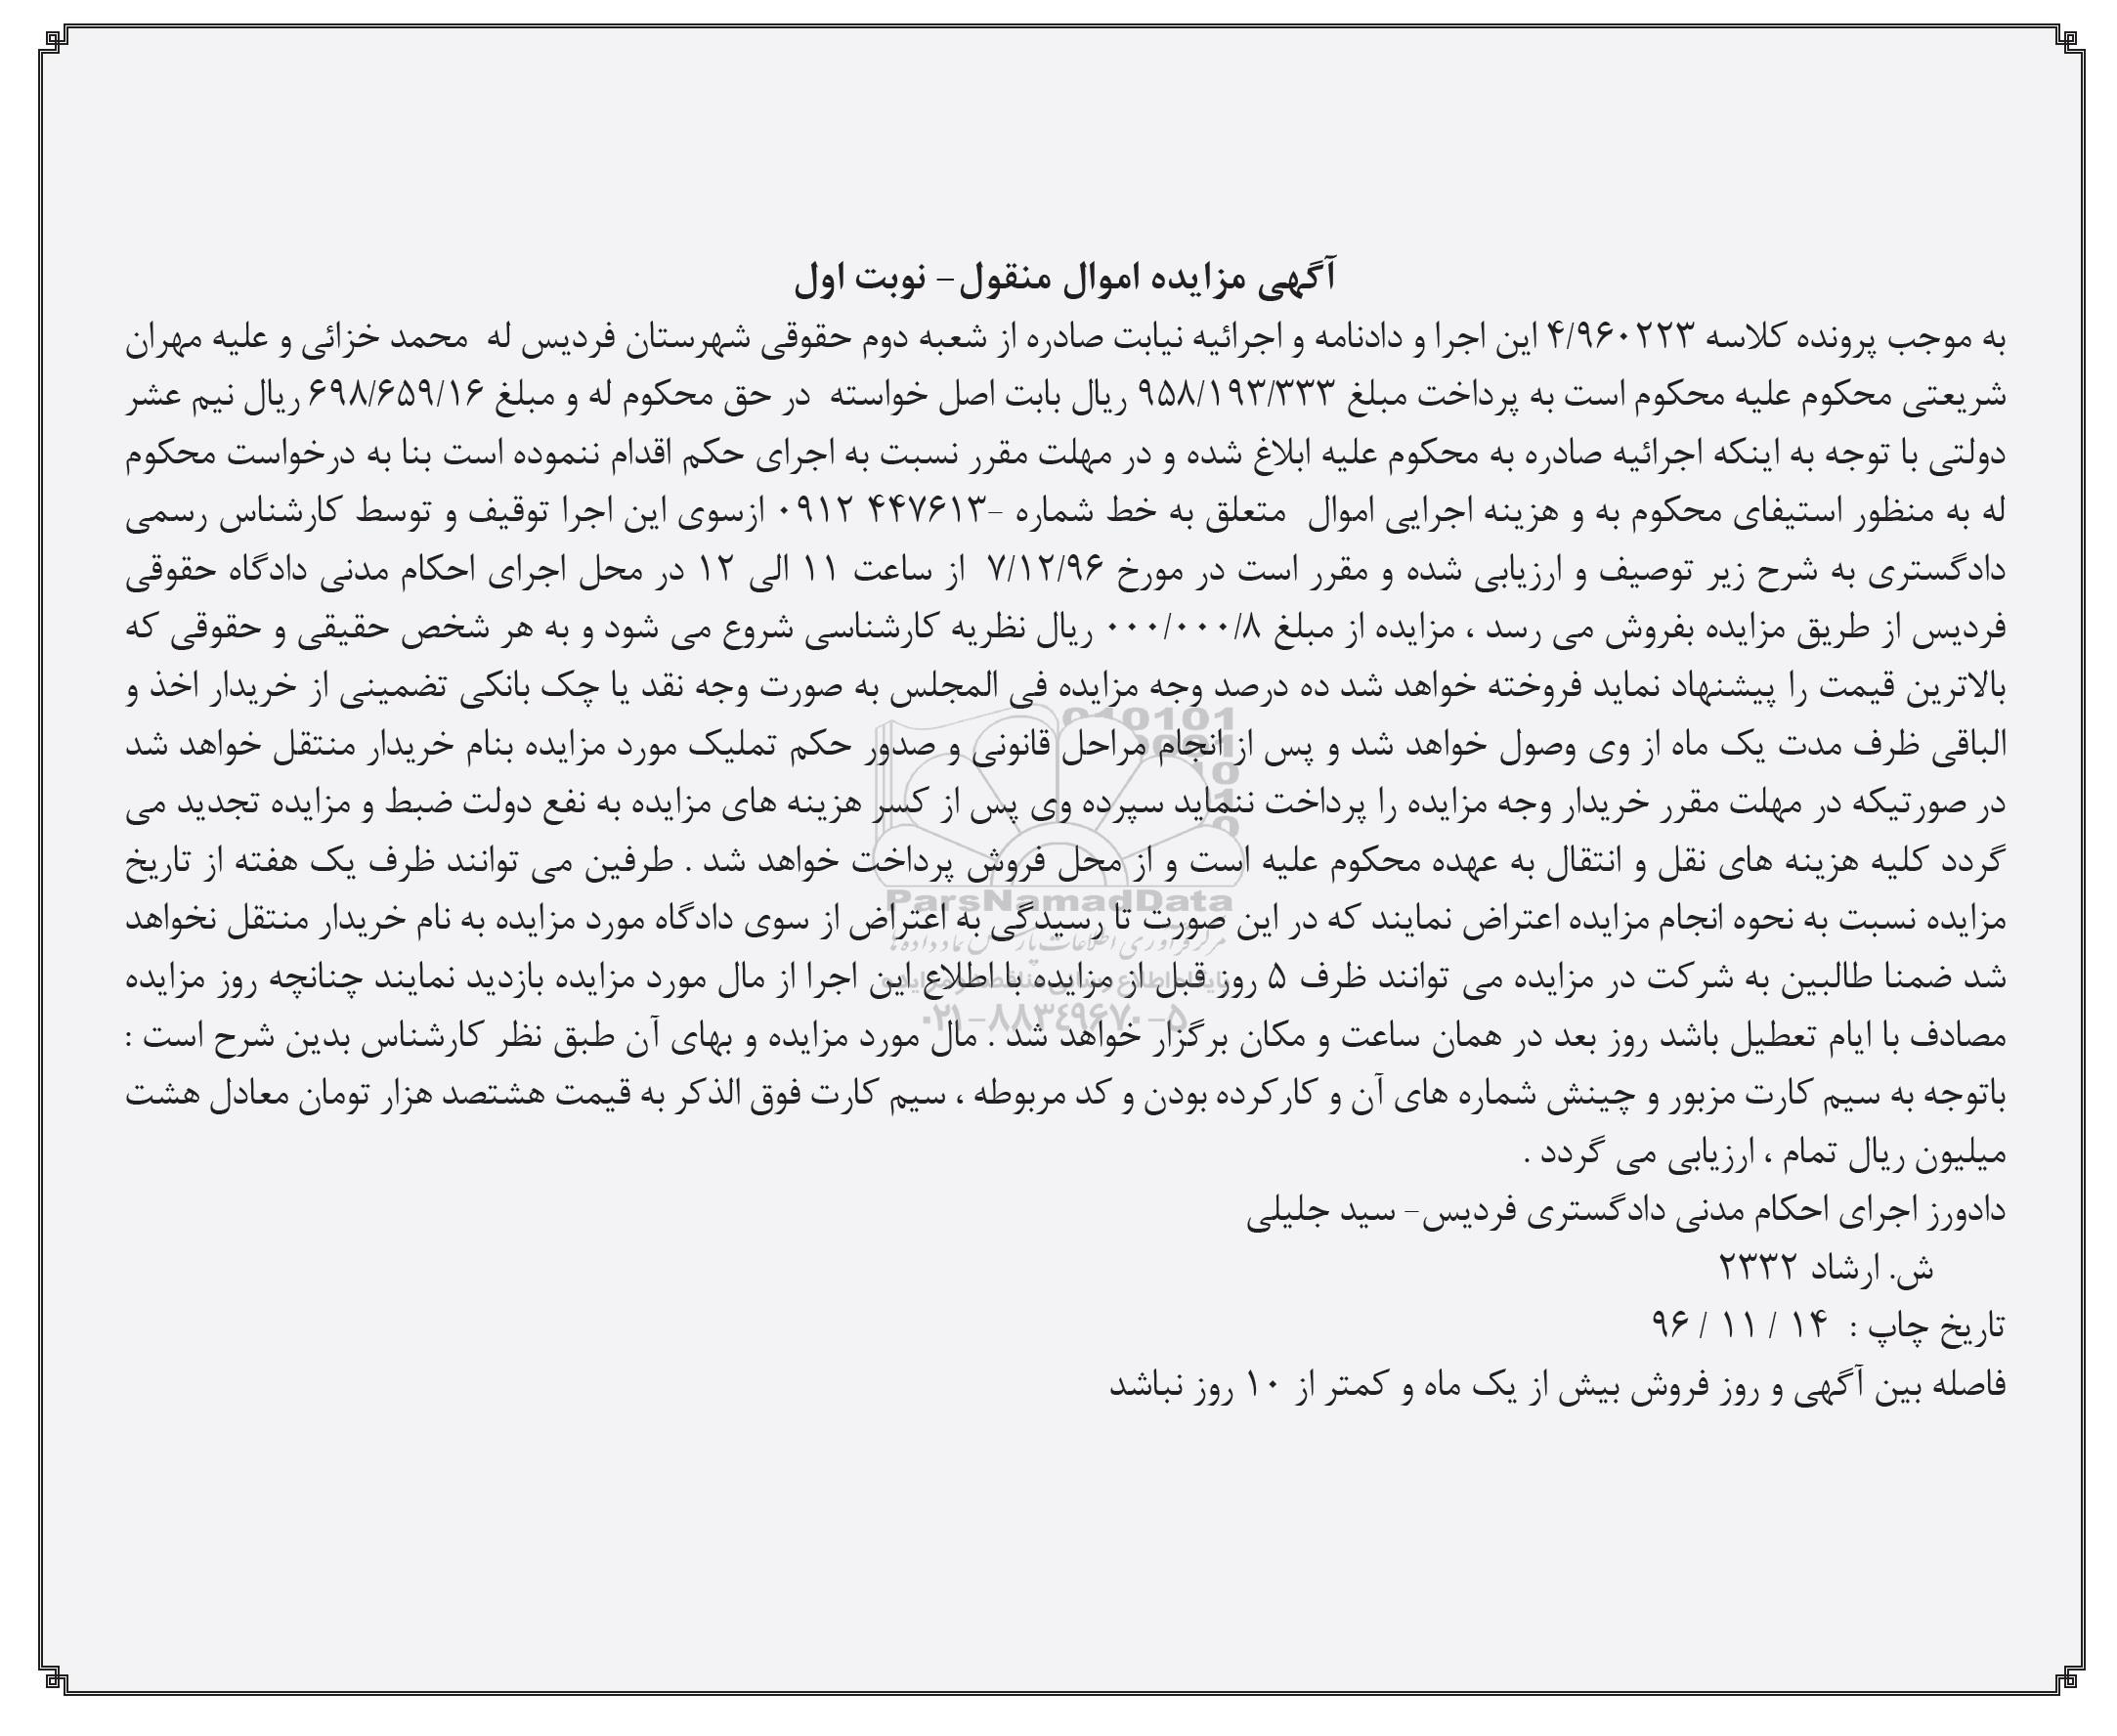 آگهی مزایده اموال منقول- نوبت اول
به موجب پرونده کلاسه ۴/۹۶۰۲۲۳ این اجرا و دادنامه و اجرائیه نیابت صادره از شعبه دوم حقوقی شهرستان فردیس له محمد خزائی و علیه مهران
شریعتی محکوم علیه محکوم است به پرداخت مبلغ ۹۵۸/۱۹۳/۳۳۳ ریال بابت اصل خواسته در حق محکوم له و مبلغ ۶۹۸/۶۵۹/۱۶ ریال نیم عشر
دولتی با توجه به اینکه اجرائیه صادره به محکوم علیه ابلاغ شده و در مهلت مقرر نسبت به اجرای حکم اقدام ننموده است بنا به درخواست محکوم
له به منظور استیفای محکوم به و هزینه اجرایی اموال متعلق به خط شماره -۴۴۷۶۱۳ ۰۹۱۲ ازسوی این اجرا توقیف و توسط کارشناس رسمی
دادگستری به شرح زیر توصیف و ارزیابی شده و مقرر است در مورخ ۷/۱۲/۹۶ از ساعت ۱۱ الی ۱۲ در محل اجرای احکام مدنی دادگاه حقوقی
فردیس از طریق مزایده بفروش می رسد ، مزایده از مبلغ ۰۰۰/۰۰۰/۸ ریال نظریه کارشناسی شروع می شود و به هر شخص حقیقی و حقوقی که
بالاترین قیمت را پیشنهاد نماید فروخته خواهد شد ده درصد وجه مزایده فی المجلس به صورت وجه نقد یا چک بانکی تضمینی از خریدار اخذ و
الباقی ظرف مدت یک ماه از وی وصول خواهد شد و پس از انجام مراحل قانونی و صدور حکم تملیک مورد مزایده بنام خریدار منتقل خواهد شد
در صورتیکه در مهلت مقرر خریدار وجه مزایده را پرداخت ننماید سپرده وی پس از کسر هزینه های مزایده به نفع دولت ضبط و مزایده تجدید می
گردد کلیه هزینه های نقل و انتقال به عهده محکوم علیه است و از محل فروش پرداخت خواهد شد . طرفین می توانند ظرف یک هفته از تاریخ
ParsNamadData
مزایده نسبت به نحوه انجام مزایده اعتراض نمایند که در این صورت تا رسیدگی به اعتراض از سوی دادگاه مورد مزایده به نام خریدار منتقل نخواهد
شد ضمنا طالبین به شرکت در مزایده می توانند ظرف ۵ روز قبل از مزایده با اطلاع این اجرا از مال مورد مزایده بازدید نمایند چنانچه روز مزایده
۰۲۱-۸۸۳۴۹۶۷۰-۵
مصادف با ایام تعطیل باشد روز بعد در همان ساعت و مکان برگزار خواهد شد . مال مورد مزایده و بهای آن طبق نظر کارشناس بدین شرح است :
باتوجه به سیم کارت مزبور و چینش شماره های آن و کارکرده بودن و کد مربوطه ، سیم کارت فوق الذکر به قیمت هشتصد هزار تومان معادل هشت
میلیون ریال تمام ، ارزیابی می گردد .
دادورز اجرای احکام مدنی دادگستری فردیس- سید جلیلی
ش. ارشاد ۲۳۳۲
تاریخ چاپ : ۱۴ / ۱۱ / ۹۶
فاصله بین آگهی و روز فروش بیش از یک ماه و کمتر از ۱۰ روز نباشد